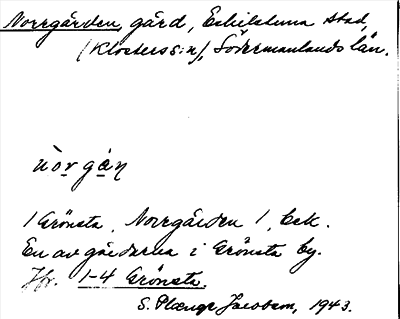 Norrgården, gård, Eskilstuna stad,
(Klosters s:n), Södermanlands län.
nòrgàṇ
1 Grönsta, Norrgården 1, bek.
En av gårdarna i Grönsta by.
Jfr. 1-4 Grönsta.
S. Plænge Jacobson, 1943.